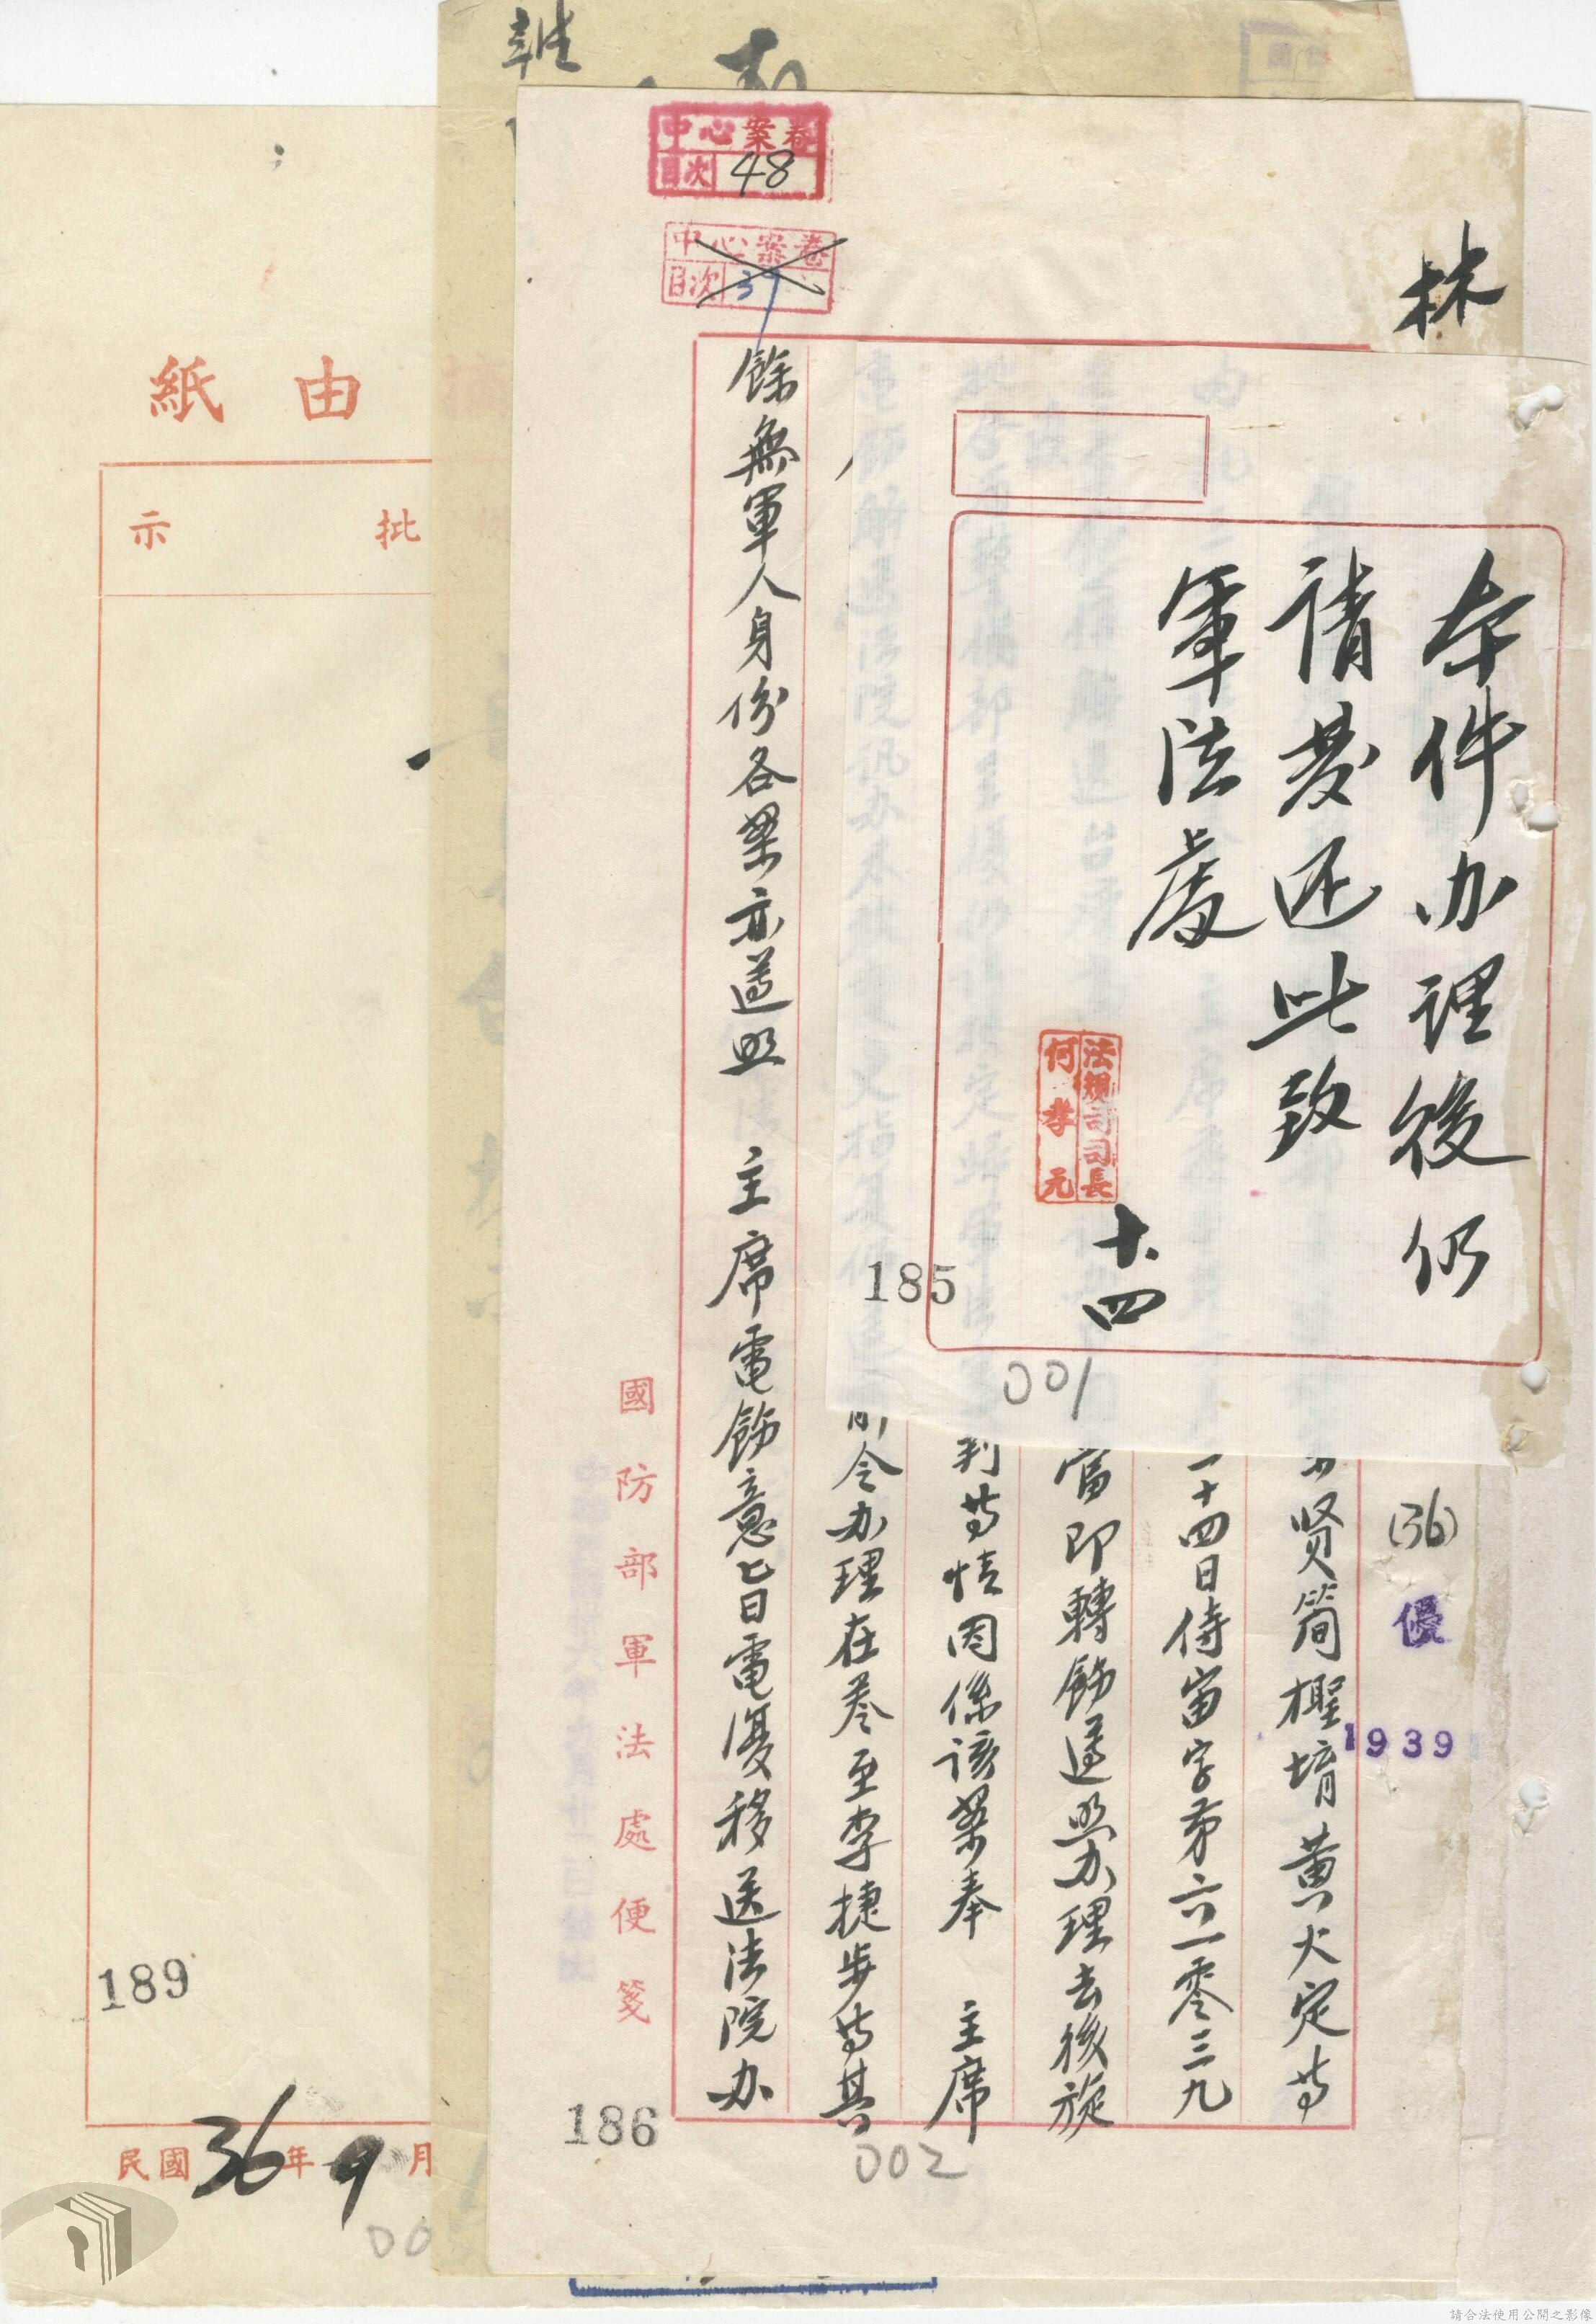 林
本件办理後仍
請發还此致
軍法處
法規司司長
何孝元
十.四
185
001
(36)
優
1939
贤簡檉堉黄火定等
二十四日侍宙字第六一零三九
當即轉飭遵照办理去後旋
判等情因係該案奉 主席
前令办理在卷至李捷步等其
餘無軍人身份各案亦遵照 主席電飭意旨電復移送法院办
中心案卷
目次 48
中心案卷
目次 37
國防部軍法處便箋
186
002
由紙
批示
189
民國36年9月
請合法使用公開之影像